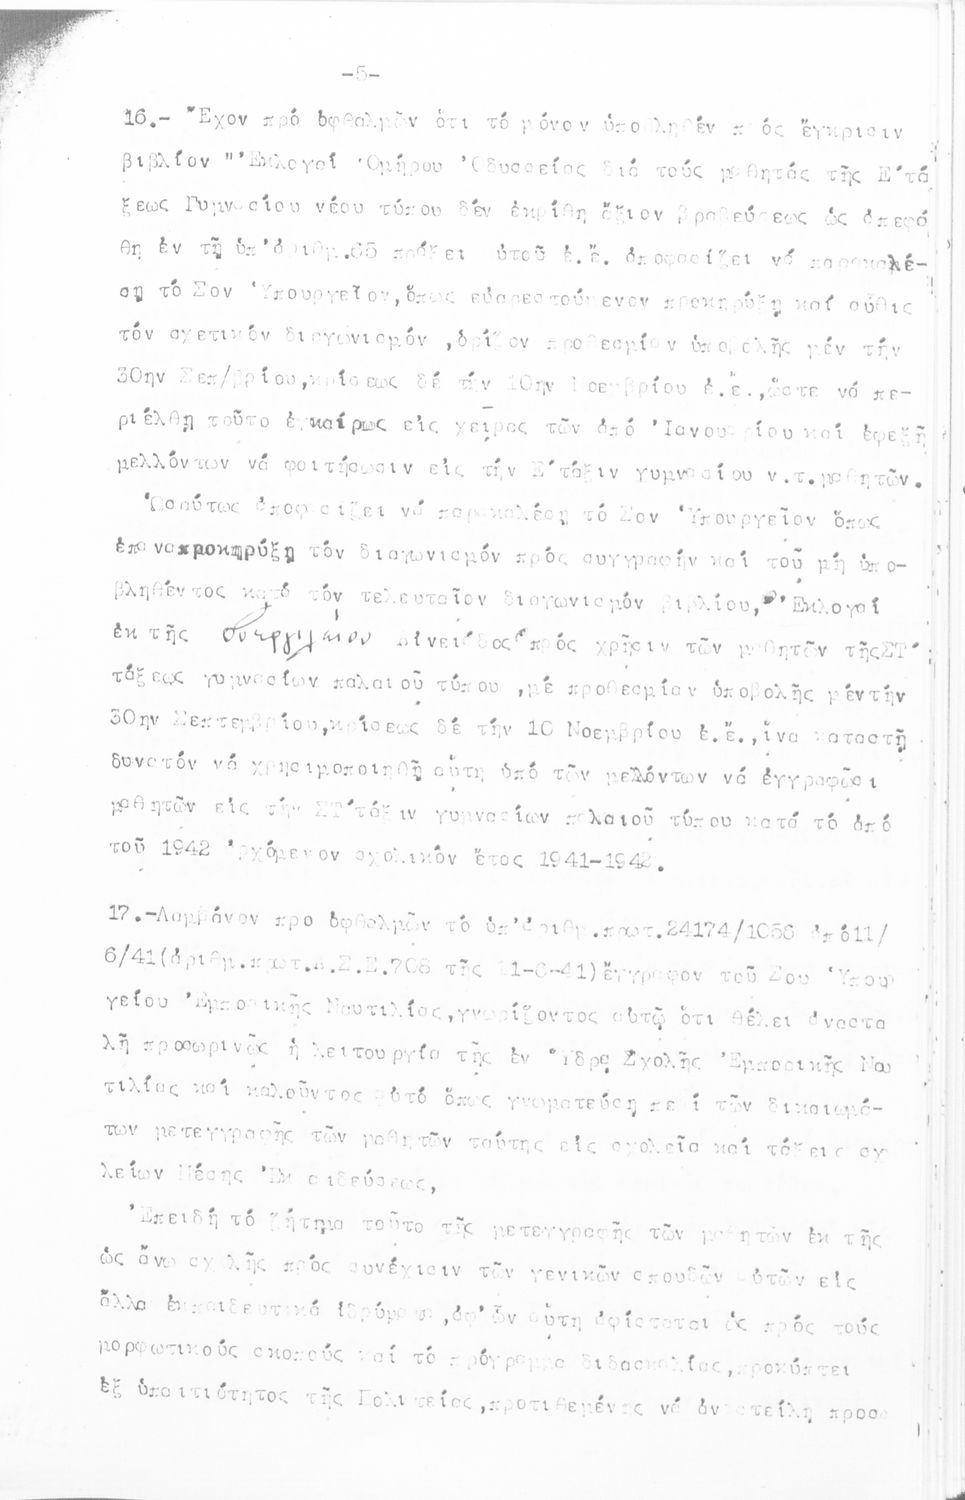 -5-
16.- Ἔχον πρό ὀφθαλμῶν ὅτι τό μόνον ὑποβληθέν πρός ἔγκρισιν
βιβλίον "Ἐκλογαί Ὁμήρου Ὀδυσσείας διά τούς μαθητάς τῆς Ε΄τά
ξεως Γυμνασίου νέου τύπου δέν ἐκρίθη ἄξιον βραβεύσεως ὡς ἀπεφά
θη ἐν τῇ ὑπ'ἀριθμ.65 πράξει αὐτοῦ ἐ.ἔ. ἀποφασίζει νά παρακαλέ-
σῃ τό Σον Ὑπουργεῖον,ὅπως εὐαρεστούμενον προκηρύξῃ καί αὖθις
τόν σχετικόν διαγωνισμόν ,ὁρίζον προθεσμίαν ὑποβολῆς μέν τήν
30ην Σεπ/βρίου,κρίσεως δέ τήν 10ην Νοεμβρίου ἐ.ἔ.,ὥστε νά πε-
ριέλθῃ τοῦτο ἐγκαίρως εἰς χεῖρας τῶν ἀπό Ἰανουαρίου καί ἐφεξῆ
μελλόντων νά φοιτήσωσιν εἰς τήν Ε΄τάξιν γυμνασίου ν.τ.μαθητῶν.
Ὡσαύτως ἀποφασίζει νά παρακαλέσῃ τό Σον Ὑπουργεῖον ὅπως
ἐπαναπροκηρύξῃ τόν διαγωνισμόν πρός συγγραφήν καί τοῦ μή ὑπο-
βληθέντος κατά τόν τελευταῖον διαγωνισμόν βιβλίου,"Ἐκλογαί
ἐκ τῆς Οὐεργιλίου Αἰνειάδος"πρός χρῆσιν τῶν μαθητῶν τῆςΣΤ΄
τάξεως γυμνασίων παλαιοῦ τύπου ,μέ προθεσμίαν ὑποβολῆς μέντήν
30ην Σεπτεμβρίου,κρίσεως δέ τήν 10 Νοεμβρίου ἐ.ἔ.,ἵνα καταστῇ
δυνατόν νά χρησιμοποιηθῇ αὕτη ὑπό τῶν μελλόντων νά ἐγγραφῶσι
μαθητῶν εἰς τήν ΣΤ΄τάξιν γυμνασίων παλαιοῦ τύπου κατά τό ἀπό
τοῦ 1942 ἀρχόμενον σχολικόν ἔτος 1941-1942.
17.-Λαμβάνον προ ὀφθαλμῶν τό ὑπ'ἀριθμ.πρωτ.24174/1056 ἀπό11/
6/41(ἀριθμ.πρωτ.Α.Σ.Ε.708 τῆς 11-6-41)ἔγγραφον τοῦ Σου Ὑπου
γείου Ἐμπορικῆς Ναυτιλίας,γνωρίζοντος αὐτῷ ὅτι θέλει ἀναστα
λῆ προσωρινῶς ἡ λειτουργία τῆς ἐν Ὕδρᾳ Σχολῆς Ἐμπορικῆς Ναυ
τιλίας καί καλοῦντος αὐτό ὅπως γνωματεύσῃ περί τῶν δικαιωμά-
των μετεγγραφῆς τῶν μαθητῶν ταύτης εἰς σχολεῖα καί τάξεις σχ
λείων Μέσης Ἐκπαιδεύσεως,
Ἐπειδή τό ζήτημα τοῦτο τῆς μετεγγραφῆς τῶν μαθητῶν ἐκ τῆς
ὡς ἄνω σχολῆς πρός συνέχισιν τῶν γενικῶν σπουδῶν αὐτῶν εἰς
ἄλλα ἐκπαιδευτικά ἱδρύματα,ἀφ'ὧν αὕτη ἀφίσταται ὡς πρός τούς
μορφωτικούς σκοπούς καί τό πρόγραμμα διδασκαλίας,προκύπτει
ἐξ ὑπαιτιότητος τῆς Πολιτείας,προτιθεμένης νά ἀναστείλῃ προσ